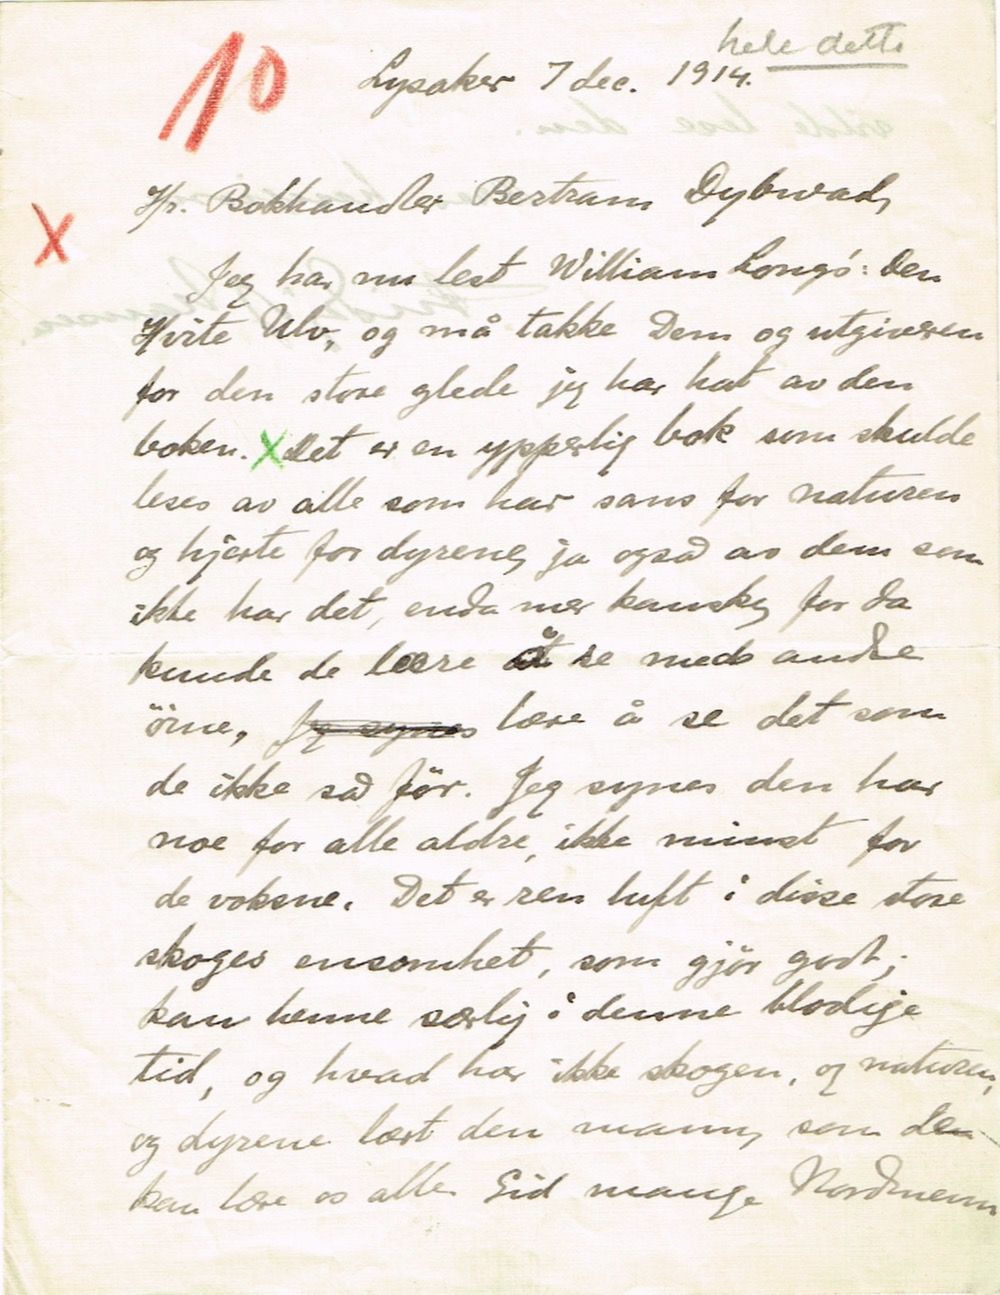 hele dette
10
Lysaker 7 dec. 1914.
Hr. Bokhandler Bertram Dybwad,
X
Jeg har nu lest William Longs: Den
Hvite Ulv, og må takke Dem og utgiveren
for den store glede jeg har hat av den
boken. X Det er en ypperlig bok som skulde
leses av alle som har sans for naturen
og hjerte for dyrene, ja også av dem som
ikke har det, enda mer kanske, for da
kunde de lære å se med andre
öine, Jeg synes lære å se det som
de ikke så för. Jeg synes den har
noe for alle aldre, ikke minst for
de voksne. Det er ren luft i disse store
skoges ensomhet, som gjör godt;
kan henne særlig i denne blodige
tid, og hvad har ikke skogen, og naturen,
og dyrene lært den mann, som den
kan lære os alle. Gid mange Nordmenn